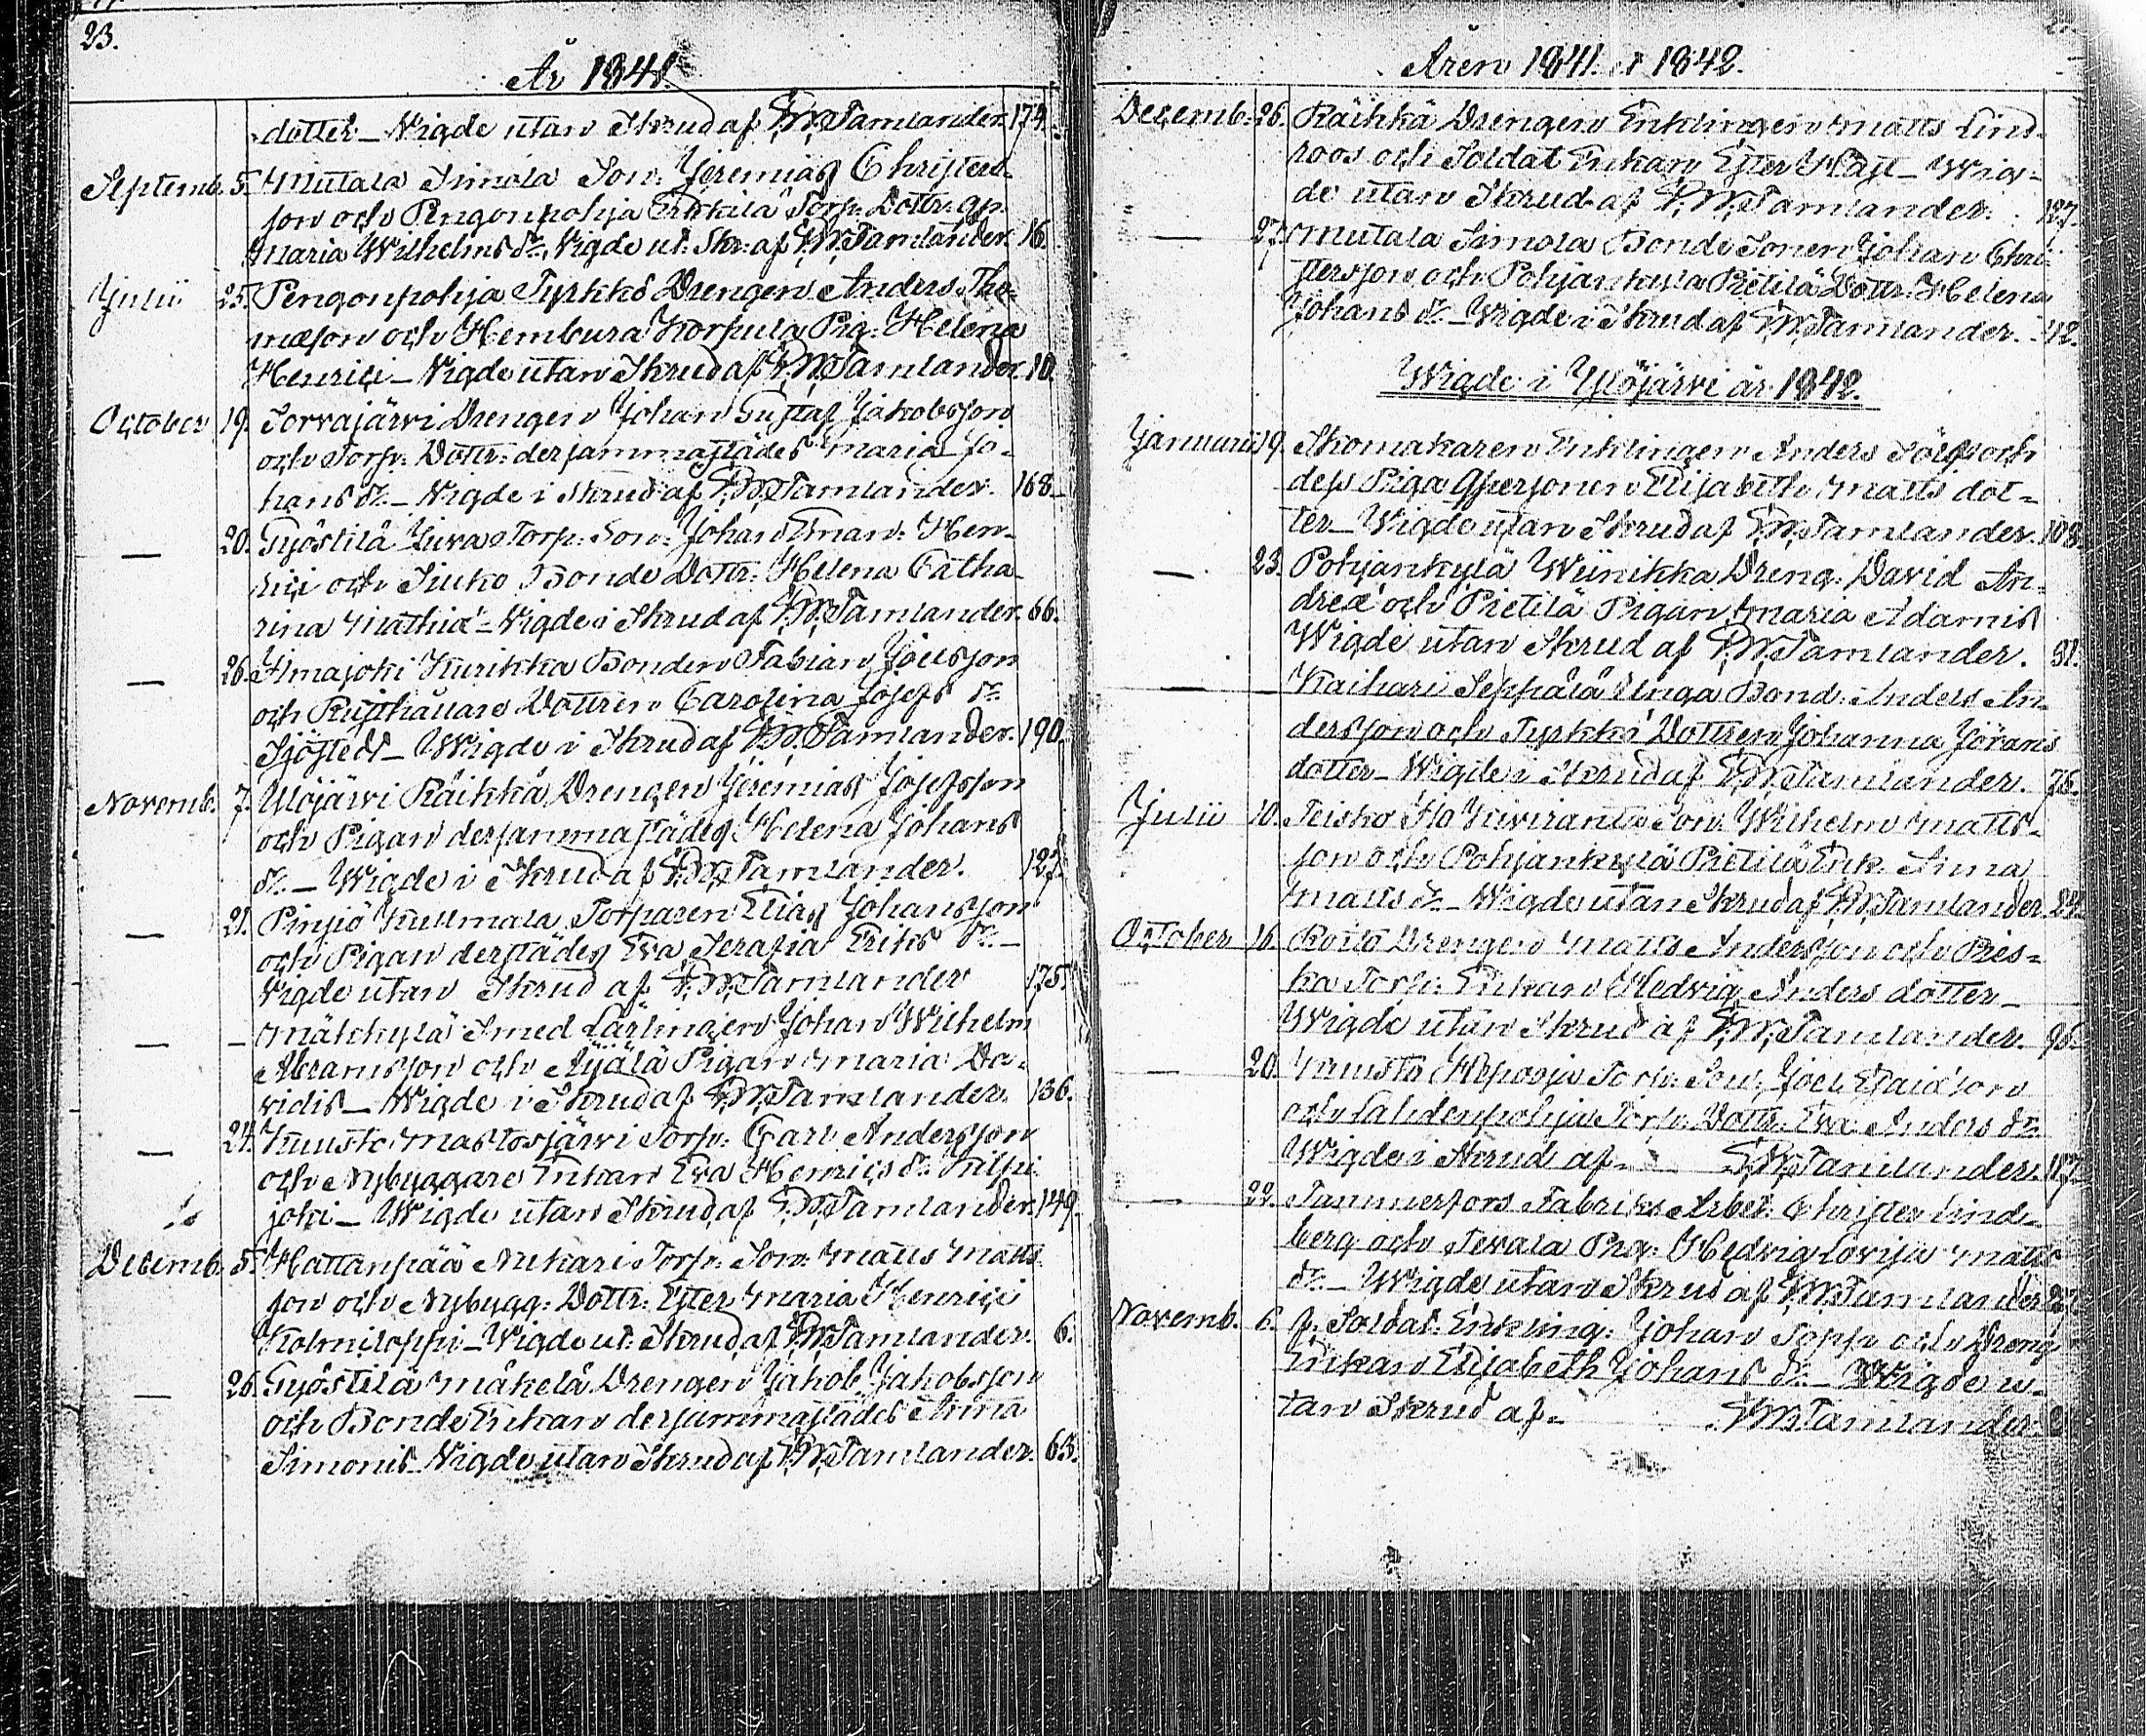 23.
År 1841.
dotter – Vigde utan Skrud af P. W. Tamlander. 174.
Septemb. 5. Mutala Simola Son: Jeremias Christers-
son och Pengonpohja Erkkilä Torp: Dottr: qp.
Maria Wilhelms dr. Vigde ut. Skr: af P. W. Tamlander. 16.
Julii 25. Pengonpohja Tyrkkö Drengen Anders Tho-
mæson och Hembura Korpula Pig: Helena
Henrici – Vigde utan Skrud af P. W. Tamlander. 10.
October 19. Sorvajärvi Drengen Johan Gustaf Jakobsson
och Torp: Dottr: dersammastädes Maria Jo-
hans dr. – Vigde i Skrud af P. W. Tamlander. 168.
— 20. Gyöstilä Liuva Torp: Son: Johan Eman: Hen-
rici och Siuko Bonde Dottr: Helena Catha-
rina Mathiæ – Vigde i Skrud af P. W. Tamlander. 66.
— 26. Ilmajoki Kurikka Bonden Fabian Joelsson
och Rusthållare Dottren Carolina Josefs dr.
Sjöstedt – Wigde i Skrud af P. W. Tamlander. 190.
Novemb. 7. Ylöjärvi Räikkä Drengen Jeremias Josefsson
och Pigan dersammastädes Helena Johans
dr. – Wigde i Skrud af P. W. Tamlander. 127.
— 21. Pinsiö Kullmala Torparen Elias Johansson
och Pigan derstädes Eva Serafia Eriks dr. –
Vigde utan Skrud af P. W. Tamlander 175.
— – Mälkkylä Smed Lärlingen Johan Wilhelm
Abramsson och Äijälä Pigan Maria Da-
vidis – Wigde i Skrud af P. W. Tamlander. 136.
— 24. Kuusto Mastosjärvi Torp: Carl Andersson
och Nybyggare Enkan Eva Henrics dr. Kilpi
joki – Wigde utan Skrud af P. W. Tamlander. 149.
Decemb. 5. Hattanpää Nekari Torp: Son: Matts Matts
son och Nybygg: Dottr: Ester Maria Henrici
Kolmiloppi – Wigde ut. Skrud af P. W. Tamlander. 6.
— 26. Gyöstilä Mäkelä Drengen Jakob Jakobsson
och Bonde Enkan dersammastädes Anna
Simonis – Vigde utan Skrud af P. W. Tamlander. 63.
Åren 1841. et 1842.
Decemb: 26. Räikkä Drengen Enklingen Matts Lind-
roos och Soldat Enkan Ester Wast – Wig-
de utan Skrud af P. W. Tamlander. 127.
— 27. Mutala Simola Bonde Sonen Johan Chri-
stersson och Pohjankylä Pietilä Dottr: Helena
Johans dr. – Wigde i Skrud af P. W. Tamlander. 42.
Wigde i Ylöjärvi år 1842.
Januarii 9. Skomakaren Enklingen Anders och
dess Piga qpersonen Elisabeth Matts dot-
ter – Wigde utan Skrud af P. W. Tamlander. 108.
— 23. Pohjankylä Wiinikka Dreng: David An-
dreæ och Pietilä Pigan Maria Adamis
Wigde utan Skrud af P. W. Tamlander. 31.
— Kaihari Seppälä Unga Bond: Anders An-
dersson och Tyrkkö Dottren Johanna Jörans
dotter – Wigde i Skrud af P. W. Tamlander. 76.
Julii 10. Teisko Kiviranta Son: Wilhelm Matts-
son och Pohjankylä Pietilä Enk. Anna
Matts dr. – Wigde utan Skrud af P. W. Tamlander. 24.
October 16. Drengen Matts Andersson och Ries-
ka Torp: Enkan Hedvig Anders dotter –
Wigde utan Skrud af P. W. Tamlander. 96.
— 20. Kuusto Torp: Son: Joel Esaiæ son
och Lahdenpohja Torp: Dottr: Eva Anders dr.
Wigde i Skrud af – P. W. Tamlander. 117.
— 22. Tammerfors Fabriks Arbet: Christer Lind-
berg och Tevala Pig: Hedvig Lovisa Matts
dr. – Wigde utan Skrud af P. W. Tamlander
Novemb. 6. f. Soldat: Enkling: Johan Topp och Dreng
Enkan Elisabeth Johans dr. – Wigde u-
tan Skrud af – P. W. Tamlander.